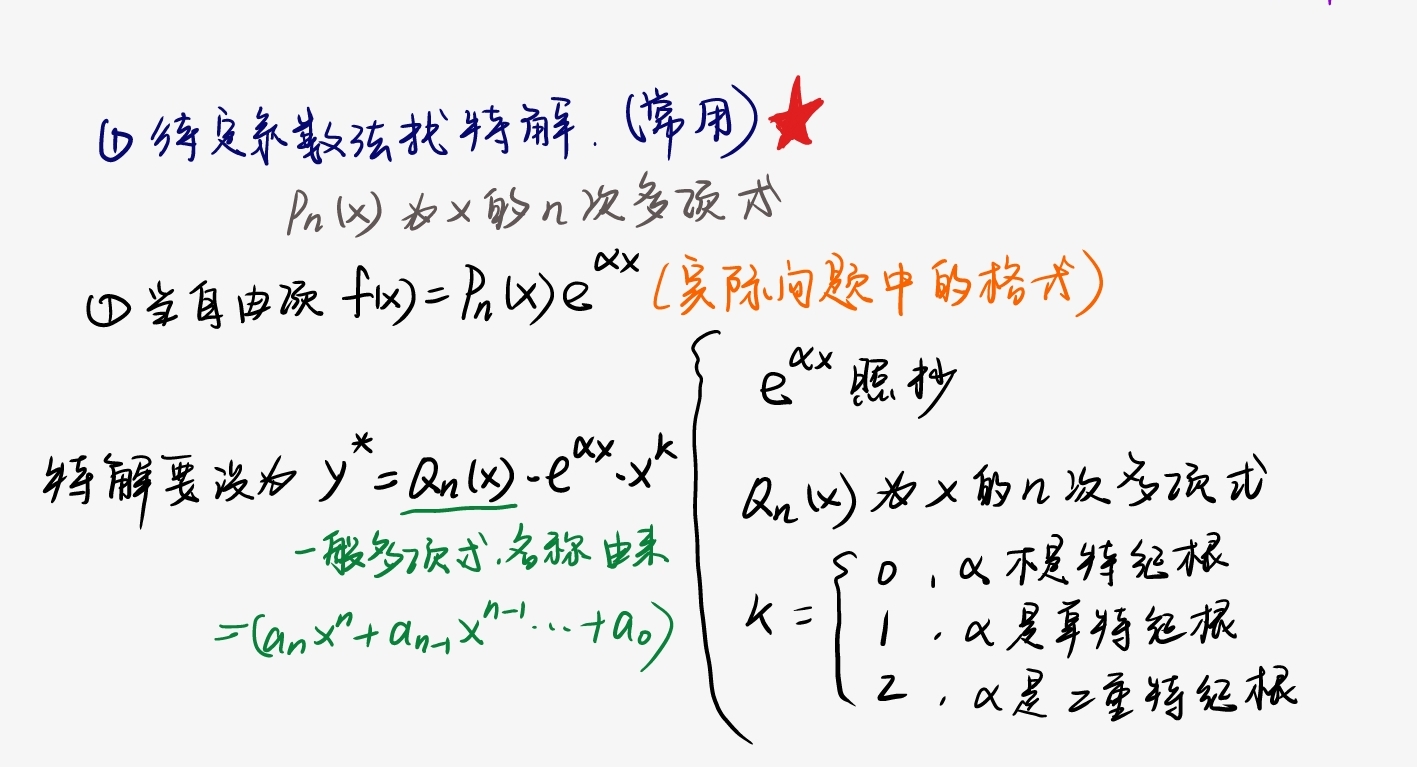 ① 待定系数法找特解.(常用)★
Pn(x)为x的n次多项式
① 当自由项 f(x)=Pn(x)e^αx (实际问题中的格式)
特解要设为 y*=Qn(x)·e^αx·x^k
一般多项式,名称由来
=(anx^n+an-1x^n-1...+a0)
e^αx 照抄
Qn(x)为x的n次多项式
k= { 0,α不是特征根
1,α是单特征根
2,α是二重特征根